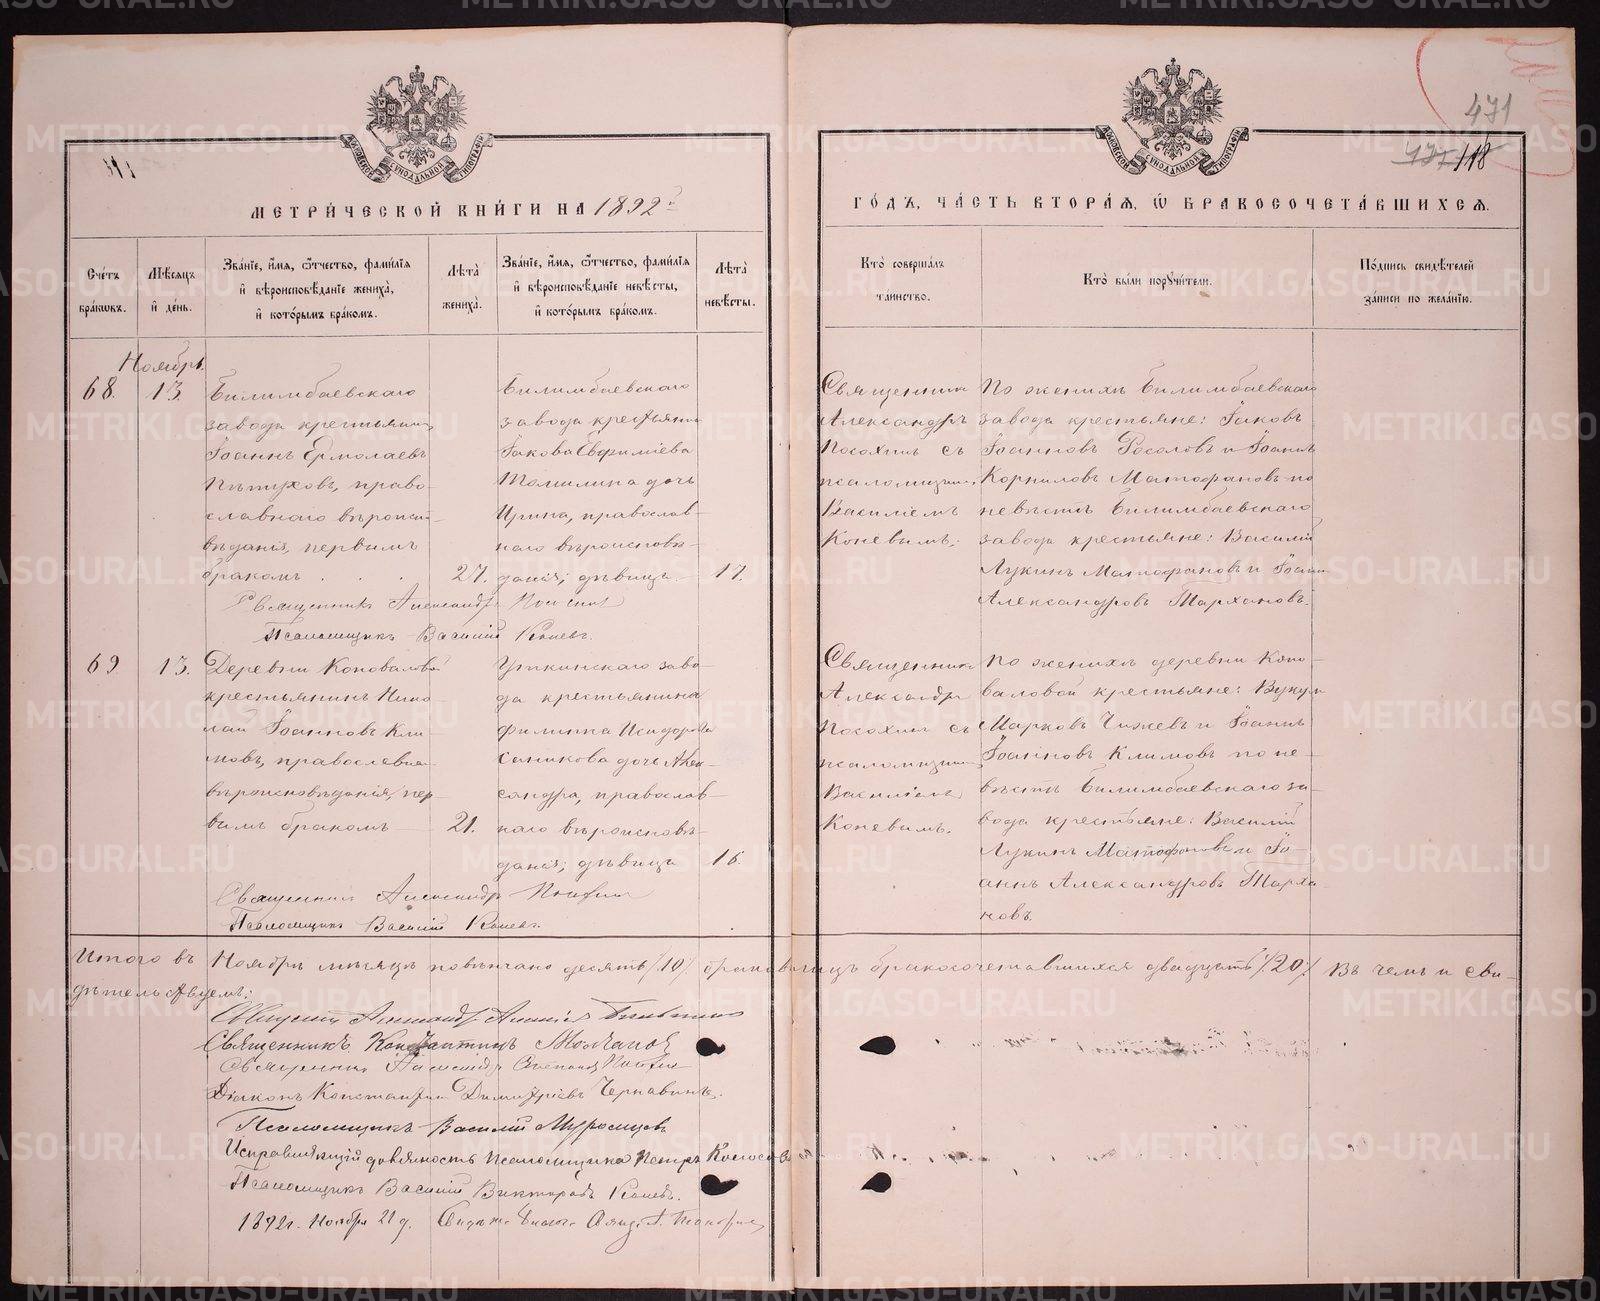 МЕТРИ́ЧЕСКОЙ КНИ́ГИ НА 1892 й
ГО́ДЪ, ЧА́СТЬ ВТОРА́Я, Ѡ БРАКОСОЧЕТА́ВШИХСЯ.
471
118
Сче́тъ бра́кѡвъ.
Мѣ́сяцъ и҆ де́нь.
Зва́нїе, и҆́мя, ѻ҆́тчество, фами́лїя и҆ вѣроисповѣ́данїе жениха̀, и҆ кото́рымъ бра́комъ.
Лѣта̀ жениха̀.
Зва́нїе, и҆́мя, ѻ҆́тчество, фами́лїя и҆ вѣроисповѣ́данїе невѣ́сты, и҆ кото́рымъ бра́комъ.
Лѣта̀ невѣ́сты.
Кто̀ соверша́лъ та́инство.
Кто̀ бы́ли порꙋчи́тели.
По́дпись свидѣ́телей за́писи по жела́нїю.
Ноябрь.
68.
13.
Билимбаевскаго
завода крестьянинъ
Іоаннъ Ермолаевъ
Пѣтуховъ, право-
славнаго вѣроиспо-
вѣданія, первымъ
бракомъ . . .
27.
Билимбаевскаго
завода крестьянина
Іакова Евфиміева
Томилина дочь
Ирина, православ-
наго вѣроисповѣ-
данія; дѣвица.
17.
Священникъ
Александръ
Посохинъ съ
псаломщик.
Василіемъ
Коневымъ.
По женихѣ Билимбаевскаго
завода крестьяне: Іаковъ
Іоанновъ Росоловъ и Іоаннъ
Корниловъ Матофановъ по
невѣстѣ Билимбаевскаго
завода крестьяне: Василій
Лукинъ Матофановъ и Іоаннъ
Александровъ Тархановъ.
Священникъ Александръ Посохинъ
Псаломщикъ Василій Коневъ.
69
13.
Деревни Коноваловой
крестьянинъ Нико-
лай Іоанновъ Кли-
мовъ, православна
вѣроисповѣданія, пер-
вымъ бракомъ
21.
Уткинскаго заво-
да крестьянина
Филиппа Исидорова
Санникова дочь Алек-
сандра, православ-
наго вѣроисповѣ-
данія; дѣвица
16.
Священникъ
Александръ
Посохинъ съ
псаломщик
Василіемъ
Коневымъ.
По женихѣ деревни Коно-
валовой крестьяне: Вукулъ
Марковъ Чижевъ и Іоаннъ
Іоанновъ Климовъ по не-
вѣстѣ Билимбаевскаго за-
вода крестьяне: Василій
Лукинъ Матофановъ и Іо-
аннъ Александровъ Тарха-
новъ.
Священникъ Александръ Посохинъ
Псаломщикъ Василій Коневъ.
Итого въ Ноябрѣ мѣсяцѣ повѣнчано десять /10/ браковъ лицъ бракосочетавшихся двадцать /20/ Въ чемъ и сви-
дѣтельствуемъ:
Священникъ Константинъ Молчанов
Священникъ Александръ Посохин
Діаконъ Константинъ Димитріевъ Чернавинъ.
Псаломщикъ Василій Муромцовъ
Исправляющій должность псаломщика Петръ Колосовъ
Псаломщикъ Василій Викторовъ Коневъ.
1892 г. Ноября 21 д.
METRIKI.GASO-URAL.RU